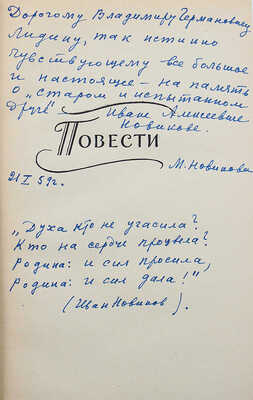 Дорогому Владимиру Германовичу
Лидину, так истинно
чувствующему все большое
и настоящее – на память
о „старом и испытанном
друге“ Иване Алексеевиче
Новикове.
Повести
М. Новикова
21 I 59 г.
„Духа кто не угасила?
Кто на сердце процвела?
Родина: и сил просила,
Родина: и сил дала!“
(Иван Новиков).